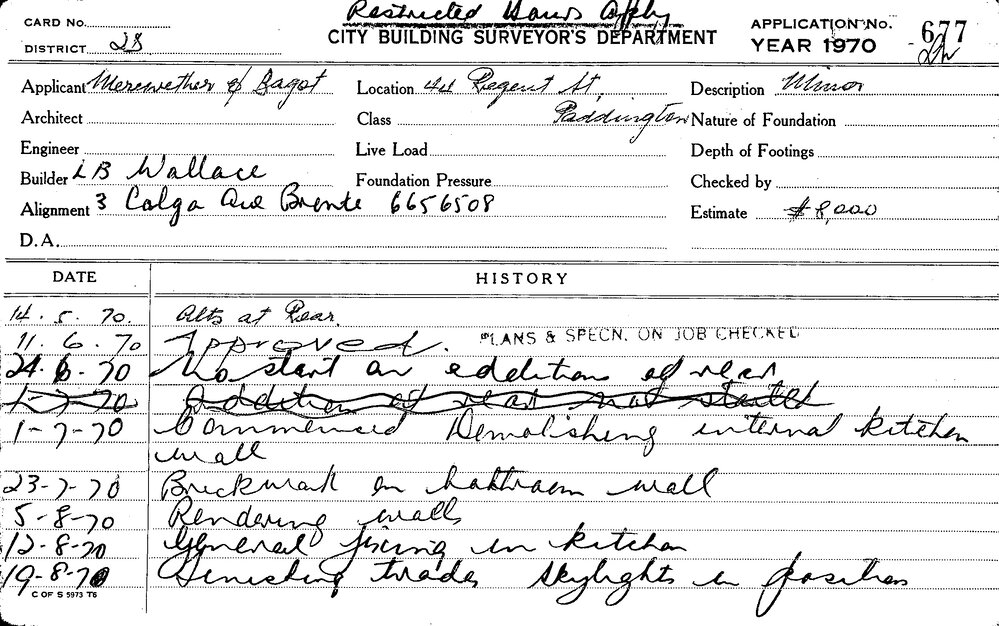 Restricted Hours Apply
CARD No.
CITY BUILDING SURVEYOR'S DEPARTMENT
APPLICATION No. 677
DISTRICT 28
YEAR 1970
Applicant Merewether & Bagot
Location 44 Regent St,
Description Minor
Architect
Class Paddington
Nature of Foundation
Engineer
Live Load
Depth of Footings
Builder L B Wallace
Foundation Pressure
Checked by
Alignment 3 Calga Ave 6656508
Estimate $8,000
D.A.
DATE HISTORY
14. 5. 70. Alts at Rear.
11. 6. 70 Approved. PLANS & SPECN. ON JOB CHECKED
24. 6. 70 No start on additions at rear
1-7-70 Addition at rear not started
1-7-70 Commenced Demolishing internal kitchen
wall
23-7-70 Brickwork on bathroom wall
5-8-70 Rendering walls
12-8-70 General fixing in kitchen
19-8-70 Finishing trades skylights in position
C OF S 5973 T6